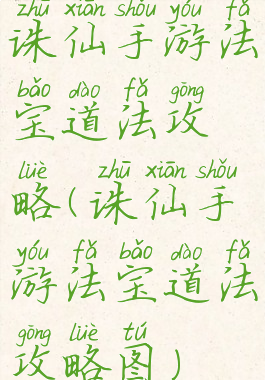 zhū xiān shǒu yóu fǎ
诛仙手游法
bǎo dào fǎ gōng
宝道法攻
lüè zhū xiān shǒu
略(诛仙手
yóu fǎ bǎo dào fǎ
游法宝道法
gōng lüè tú
攻略图)